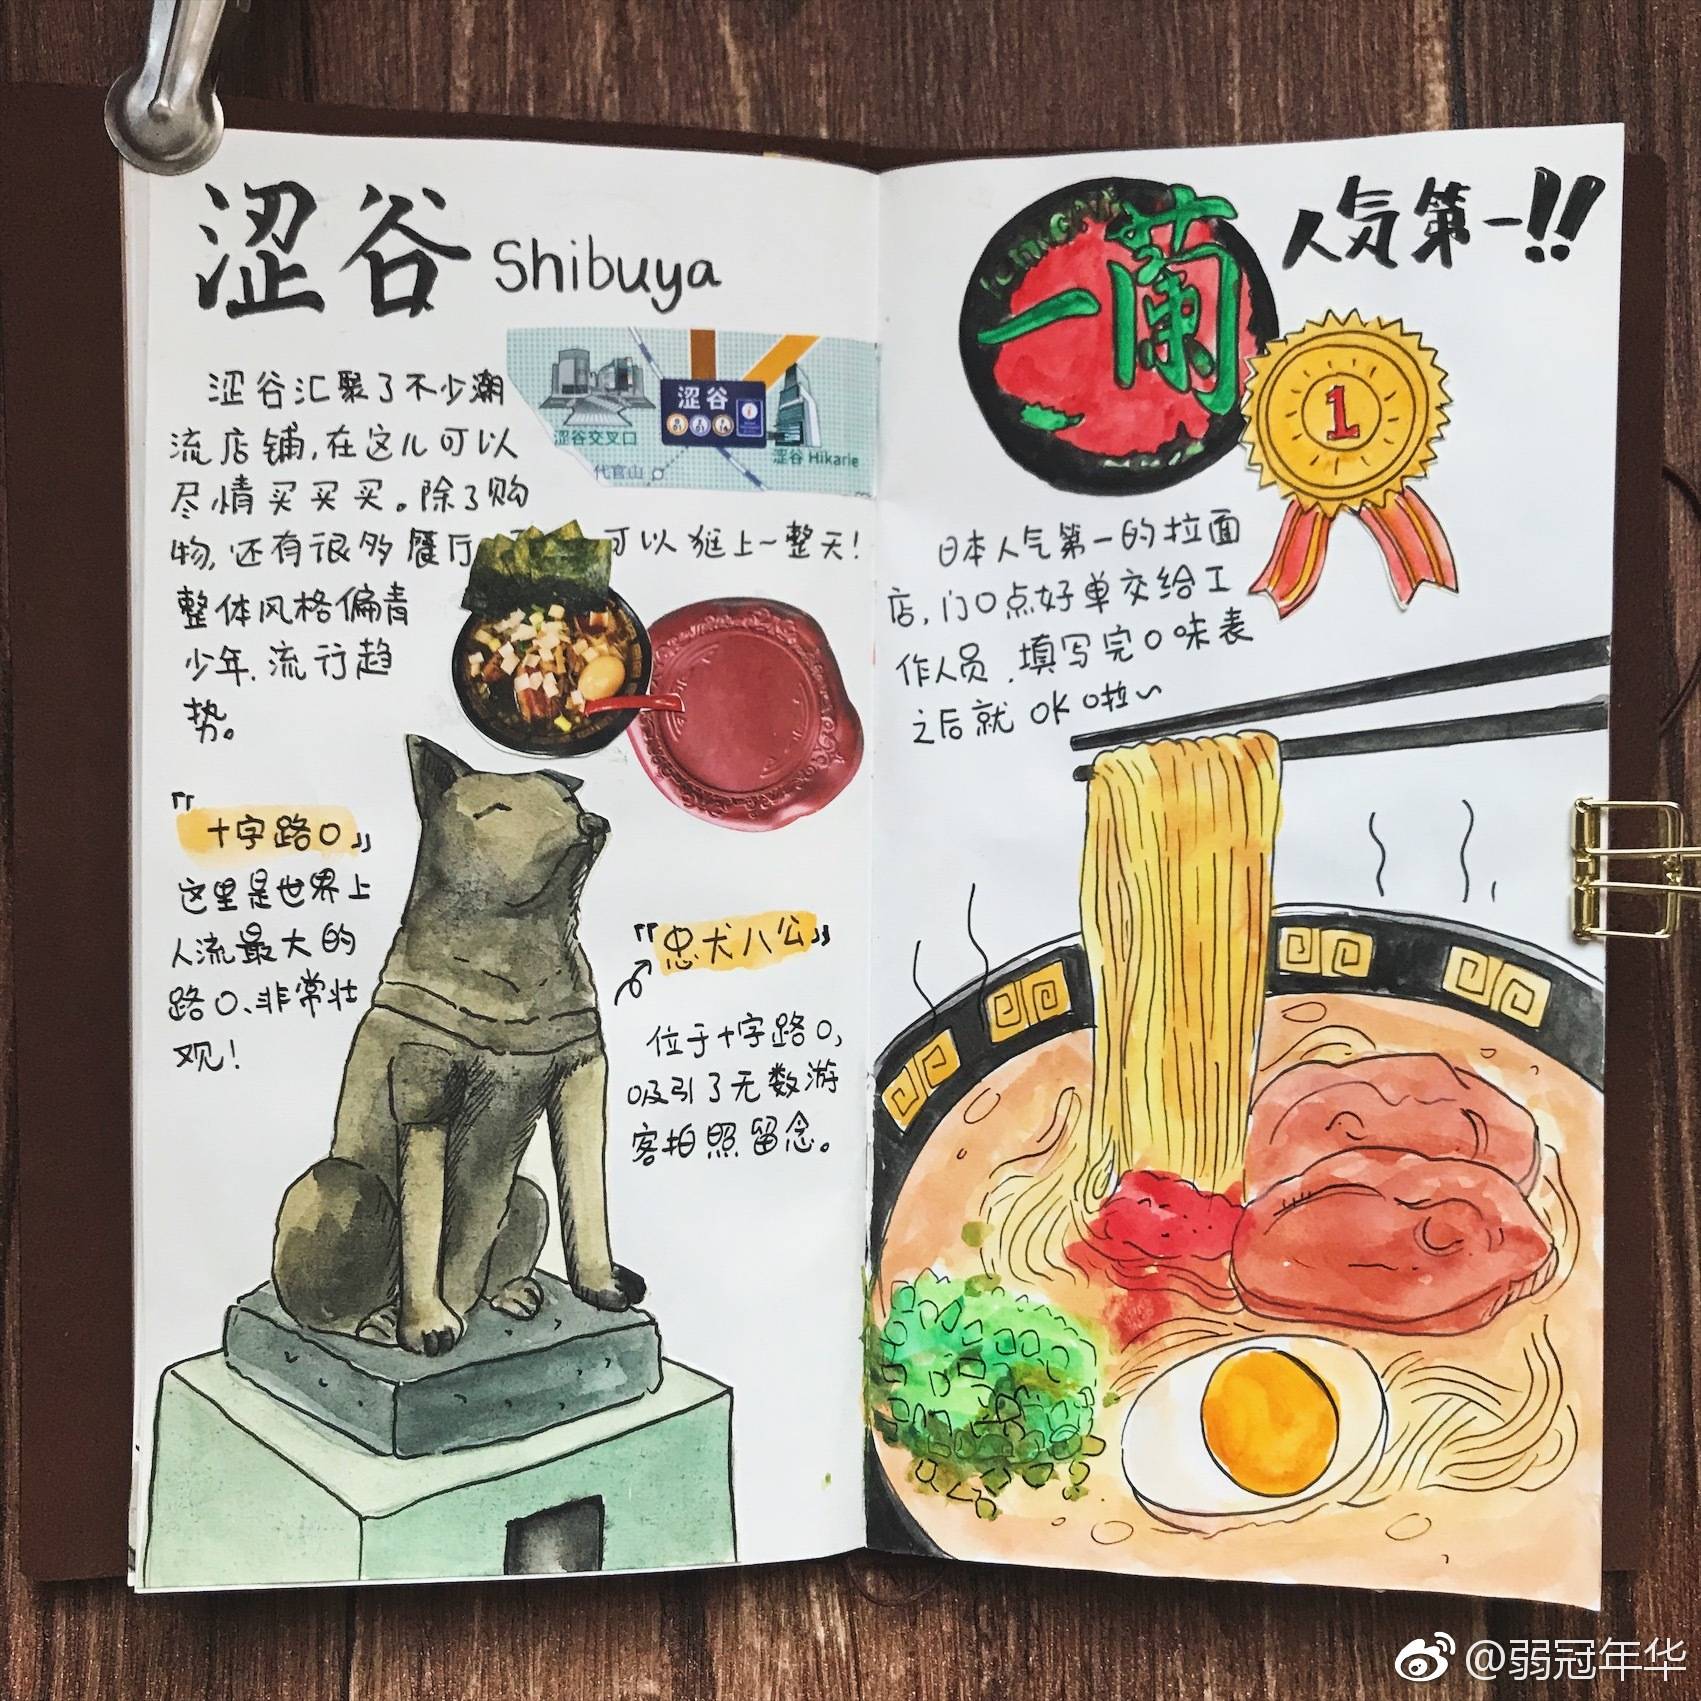 涩谷 Shibuya
涩谷汇聚了不少潮
流店铺,在这儿可以
尽情买买买。除了购
物,还有很多餐厅 可以逛上一整天!
整体风格偏青
少年、流行趋
势。
涩谷
涩谷交叉口
代官山
涩谷 Hikarie
「十字路口」
这里是世界上
人流最大的
路口、非常壮
观!
「忠犬八公」
位于十字路口,
吸引了无数游
客拍照留念。
一蘭
人气第一!!
1
日本人气第一的拉面
店,门口点好单交给工
作人员,填写完口味表
之后就OK啦~
@弱冠年华